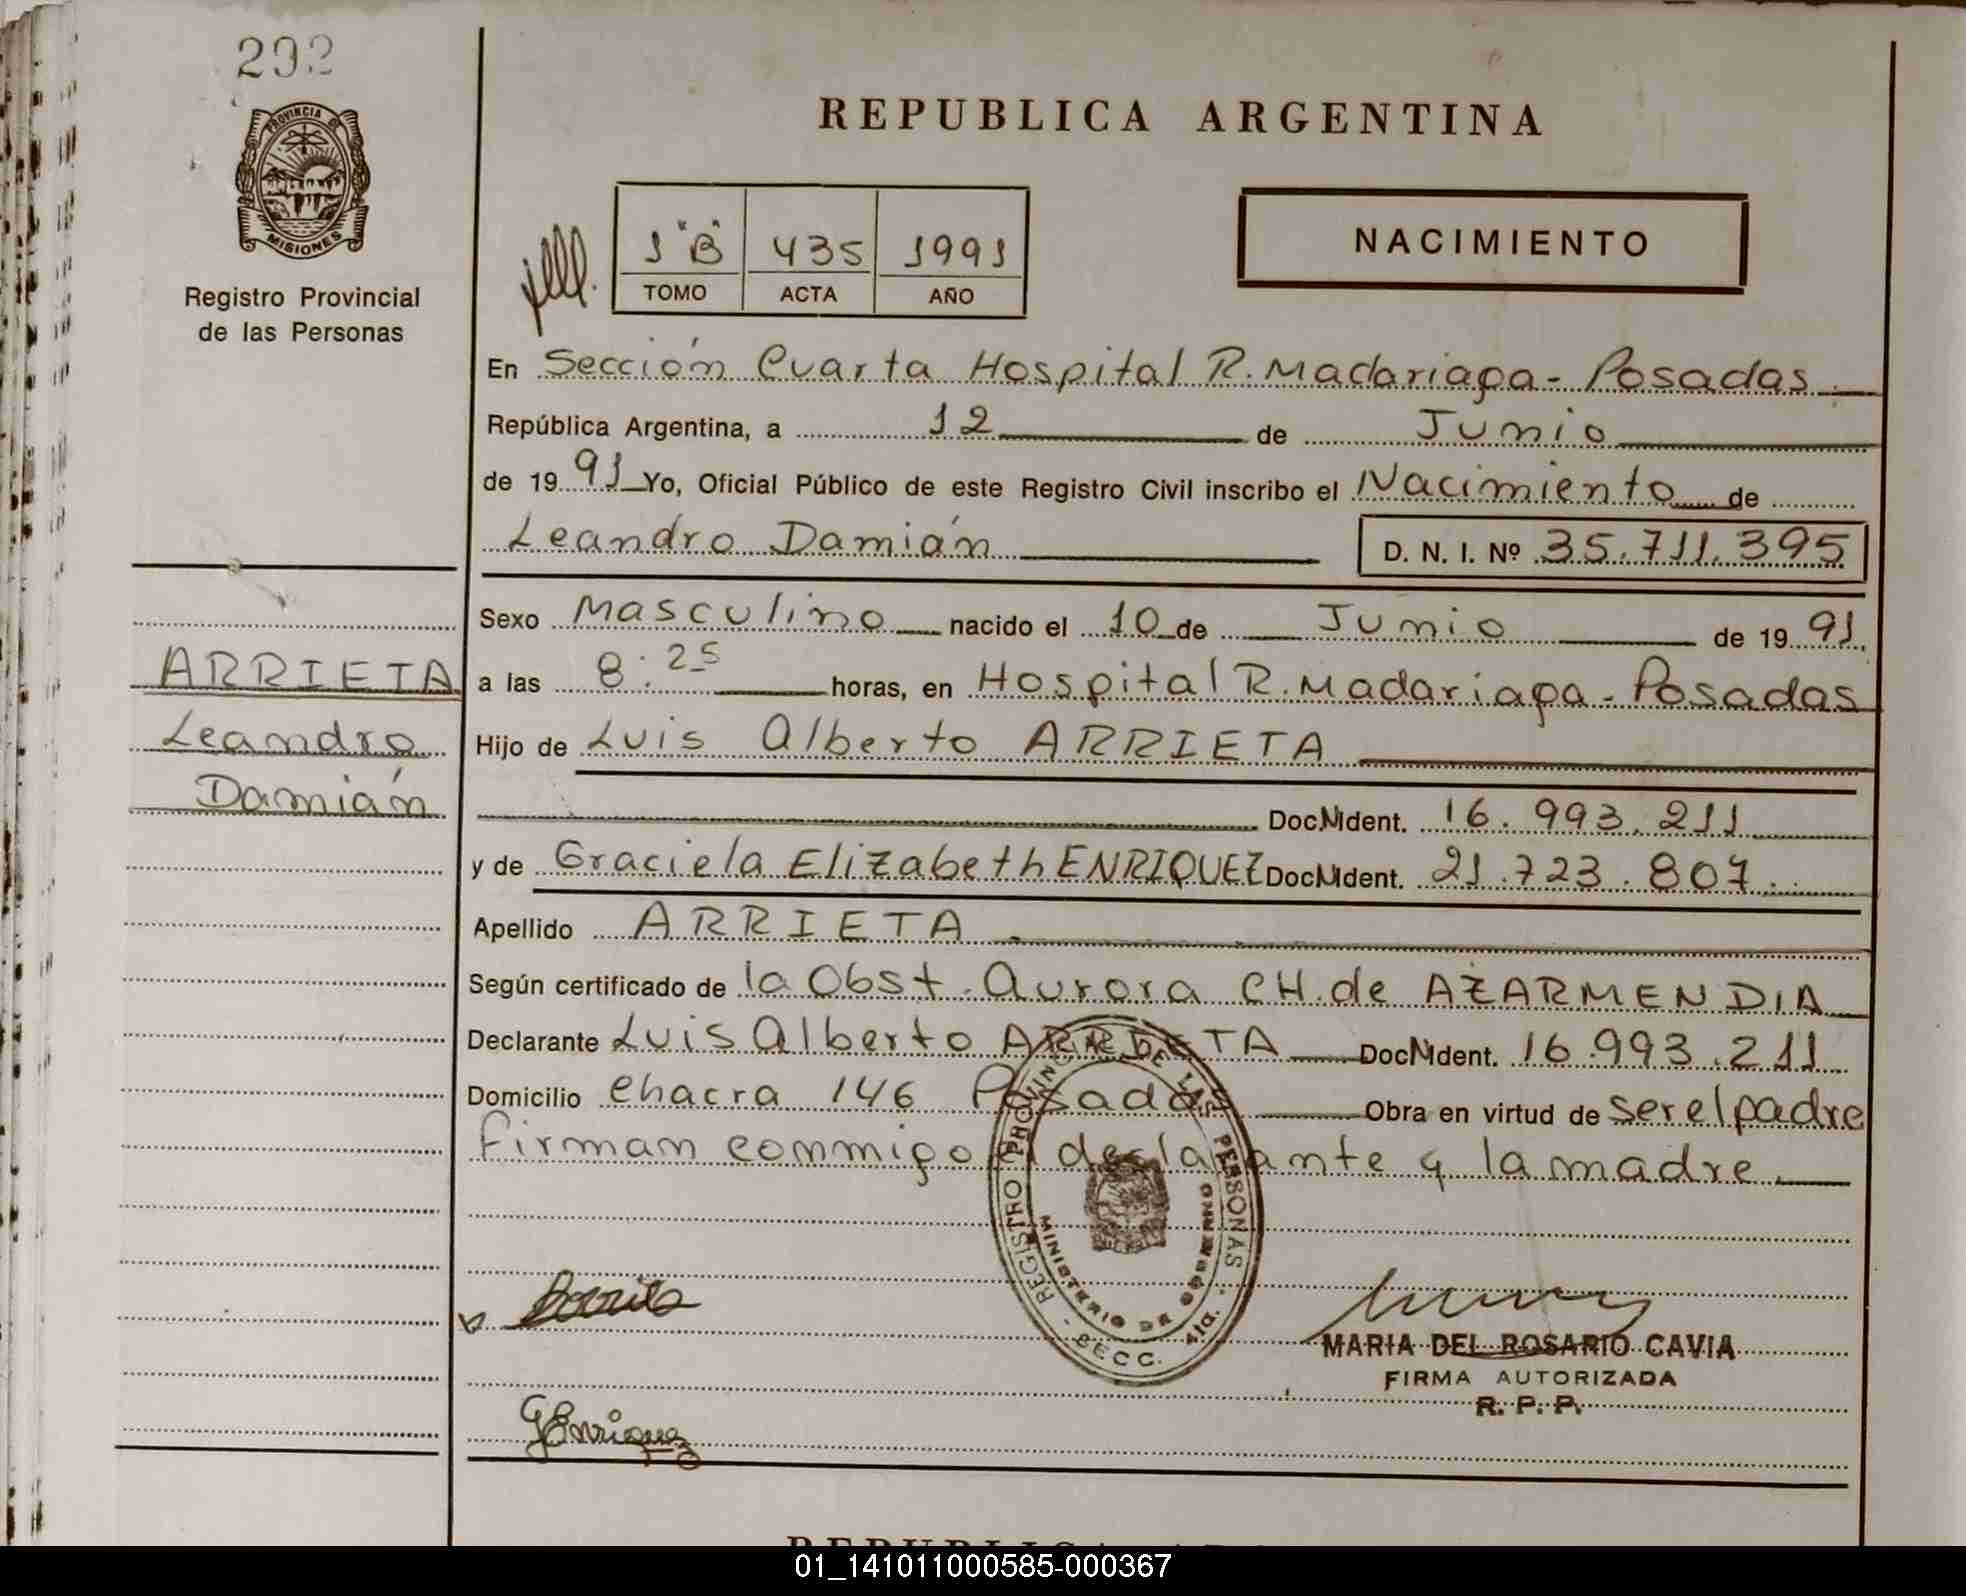 292
PROVINCIA DE
MISIONES
Registro Provincial
de las Personas
REPUBLICA ARGENTINA
1 "B" 435 1991
TOMO ACTA AÑO
NACIMIENTO
En Sección Cuarta Hospital R. Madariaga - Posadas
República Argentina, a 12 de Junio
de 1991 Yo, Oficial Público de este Registro Civil inscribo el Nacimiento de
Leandro Damián D. N. I. Nº 35.711.395
Sexo Masculino nacido el 10 de Junio de 1991
a las 8:25 horas, en Hospital R. Madariaga - Posadas
Hijo de Luis Alberto ARRIETA
Doc. Ident. 16.993.211
y de Graciela Elizabeth ENRIQUEZ Doc. Ident. 21.723.807
Apellido ARRIETA
Según certificado de la Obst. Aurora CH. de AZARMENDIA
Declarante Luis Alberto ARRIETA Doc. Ident. 16.993.211
Domicilio Chacra 146 Posadas Obra en virtud de ser el padre
Firman conmigo el declarante y la madre
ARRIETA
Leandro
Damián
REGISTRO PROVINCIAL DE LAS PERSONAS
MINISTERIO DE GOBIERNO
SECC. 4ta.
MARIA DEL ROSARIO CAVIA
FIRMA AUTORIZADA
R. P. P.
GEnriquez
01_141011000585-000367